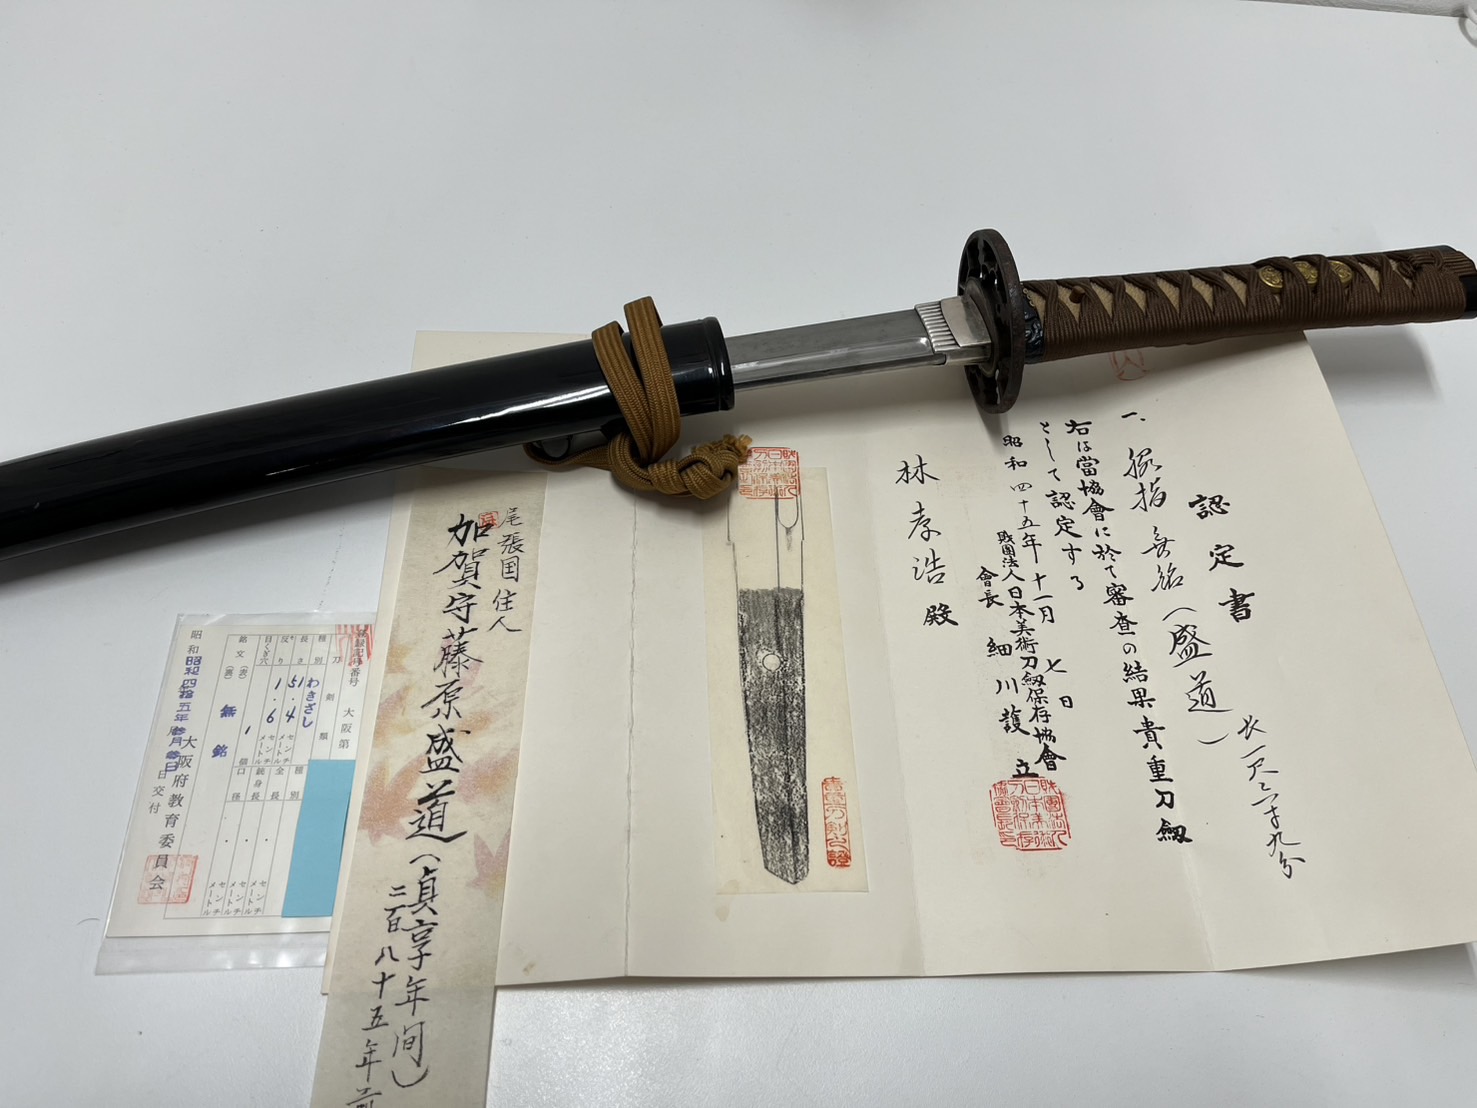 認定書
一、脇指 無銘（盛道） 長一尺六寸九分
右は當協會に於て審査の結果貴重刀劔
として認定する
昭和四十五年十一月七日
財團法人日本美術刀劔保存協會
會長 細川護立
林孝浩殿
尾張国住人
加賀守藤原盛道（貞享年間）
二百八十五年前
登録記号番号
大阪第
種別
刀剣類
わきざし
長さ
51.4センチメートル
反り
1.6センチメートル
目くぎ穴
1個
銘文（表）
（裏）
無銘
種別
全長
センチメートル
銃身長
センチメートル
口径
センチメートル
昭和四拾五年
日交付
大阪府教育委員会